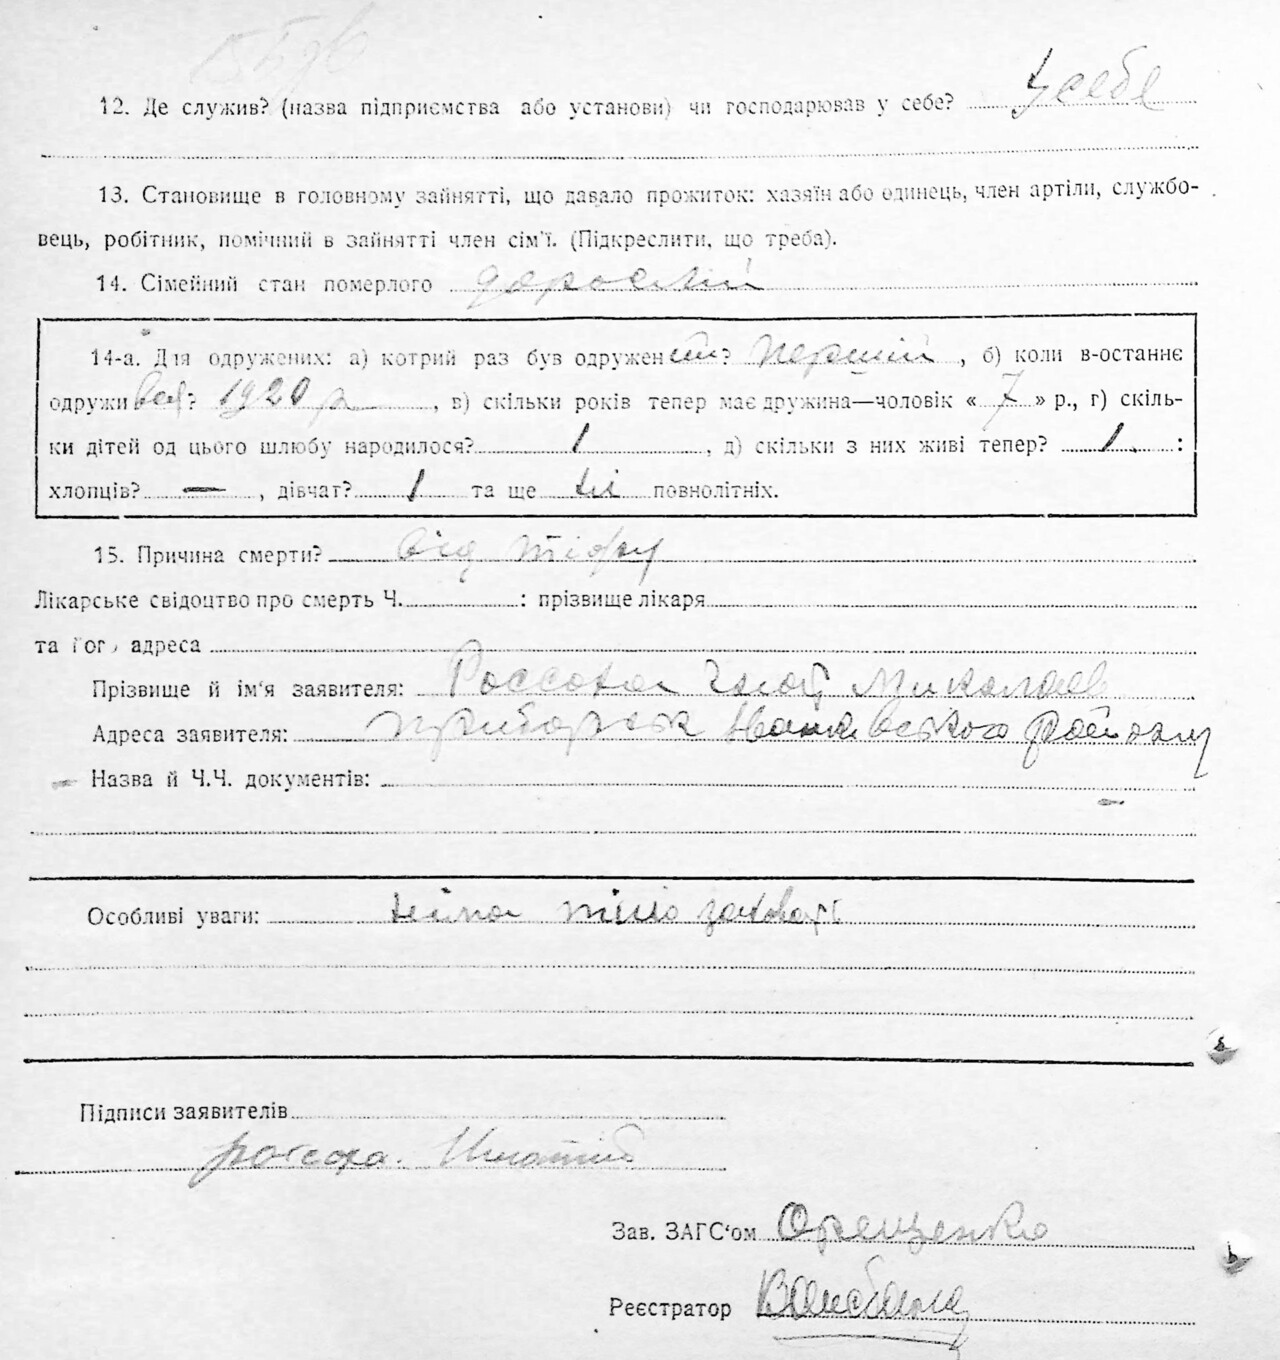 12. Де служив? (назва підприємства або установи) чи господарював у себе? У себе
13. Становище в головному зайнятті, що давало прожиток: хазяїн або одинець, член артіли, службо-
вець, робітник, помічний в зайнятті член сім'ї. (Підкреслити, що треба).
14. Сімейний стан померлого
14-а. Для одружених: а) котрий раз був одружен ий? перший, б) коли в-останнє
одружи вся? 1920 р, в) скільки років тепер має дружина—чоловік « 7 » р., г) скіль-
ки дітей од цього шлюбу народилося? 1, д) скільки з них живі тепер? 1 :
хлопців? —, дівчат? 1 та ще ні повнолітніх.
15. Причина смерти? від тіфу
Лікарське свідоцтво про смерть Ч. : прізвище лікаря
та його адреса
Прізвище й ім'я заявителя: Россоха
Адреса заявителя: району
Назва й Ч.Ч. документів:
Особливі уваги: нема
Підписи заявителів
россоха.
Зав. ЗАГС'ом Орещенко
Реєстратор